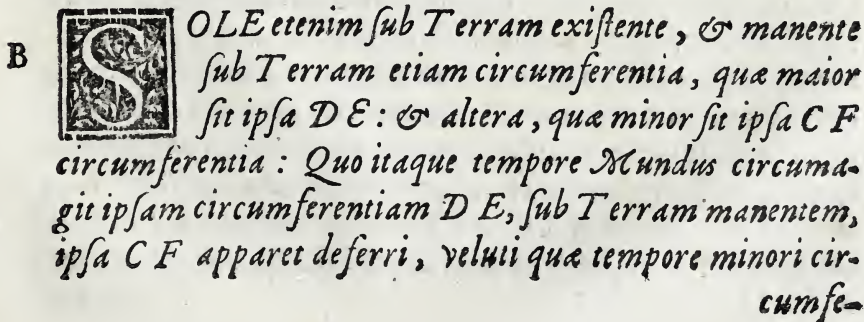 B SOLE etenim ſub Terram exiſtente, & manente
ſub Terram etiam circumferentia, quæ maior
ſit ipſa D E: & altera, quæ minor ſit ipſa C F
circumferentia: Quo itaque tempore Mundus circuma-
git ipſam circumferentiam D E, ſub Terram manentem,
ipſa C F apparet deferri, veluti quæ tempore minori cir-
cumfe-